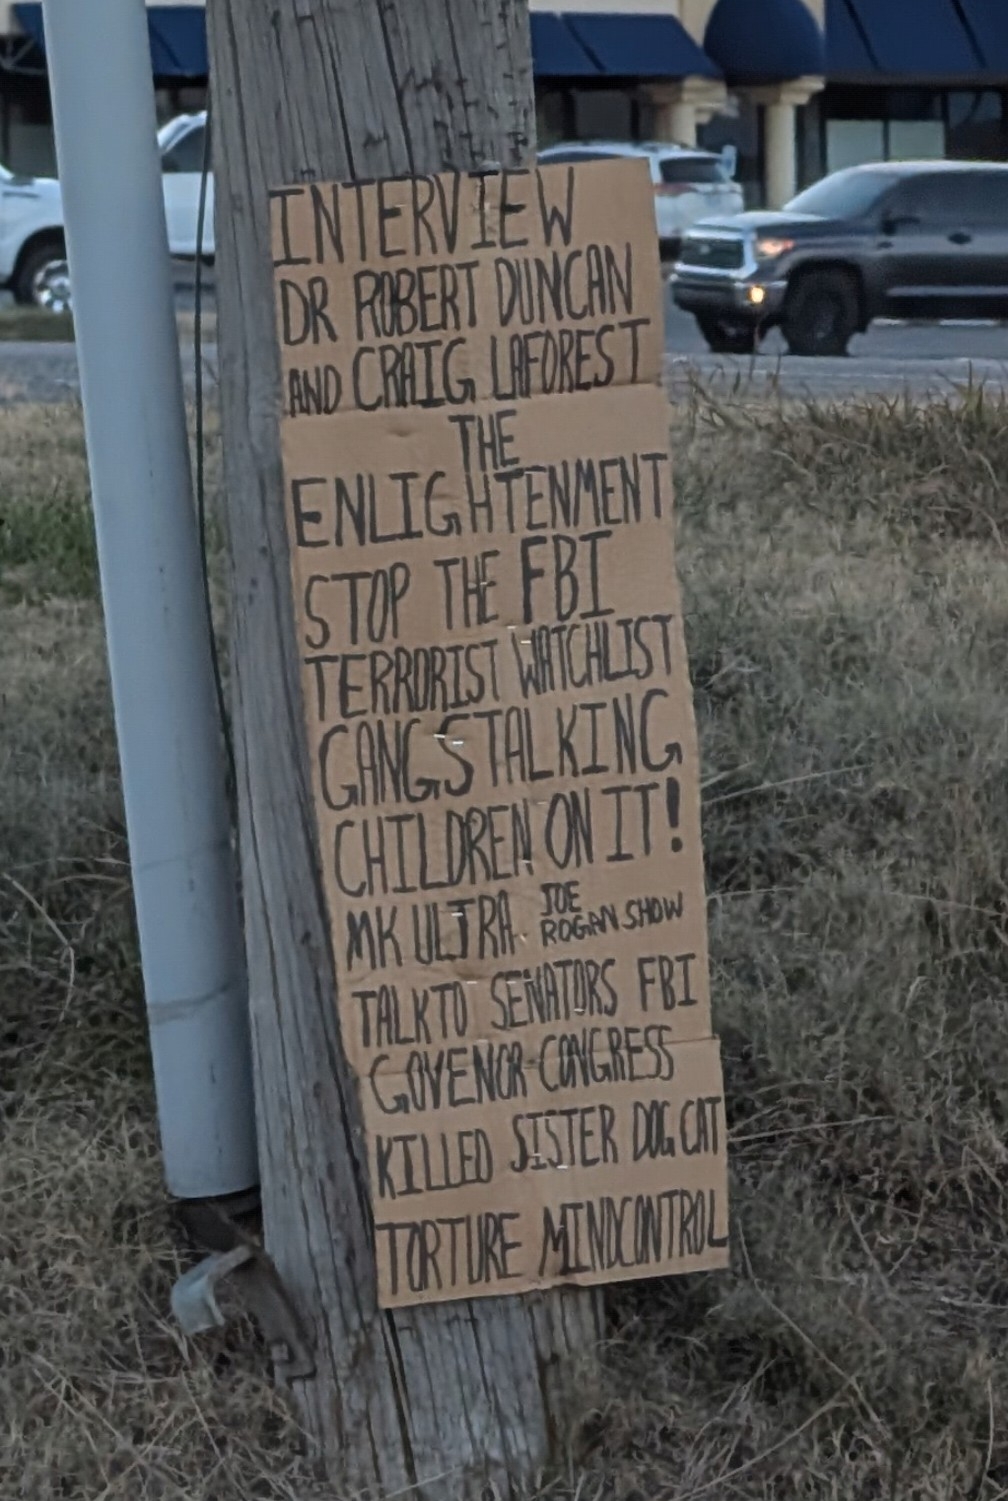 INTERVIEW
DR ROBERT DUNCAN
AND CRAIG LAFOREST
THE
ENLIGHTENMENT
STOP THE FBI
TERRORIST WATCHLIST
GANGSTALKING
CHILDREN ON IT!
MK ULTRA. JOE
ROGAN SHOW
TALK TO SENATORS FBI
GOVENOR-CONGRESS
KILLED SISTER DOG CAT
TORTURE MINDCONTROL